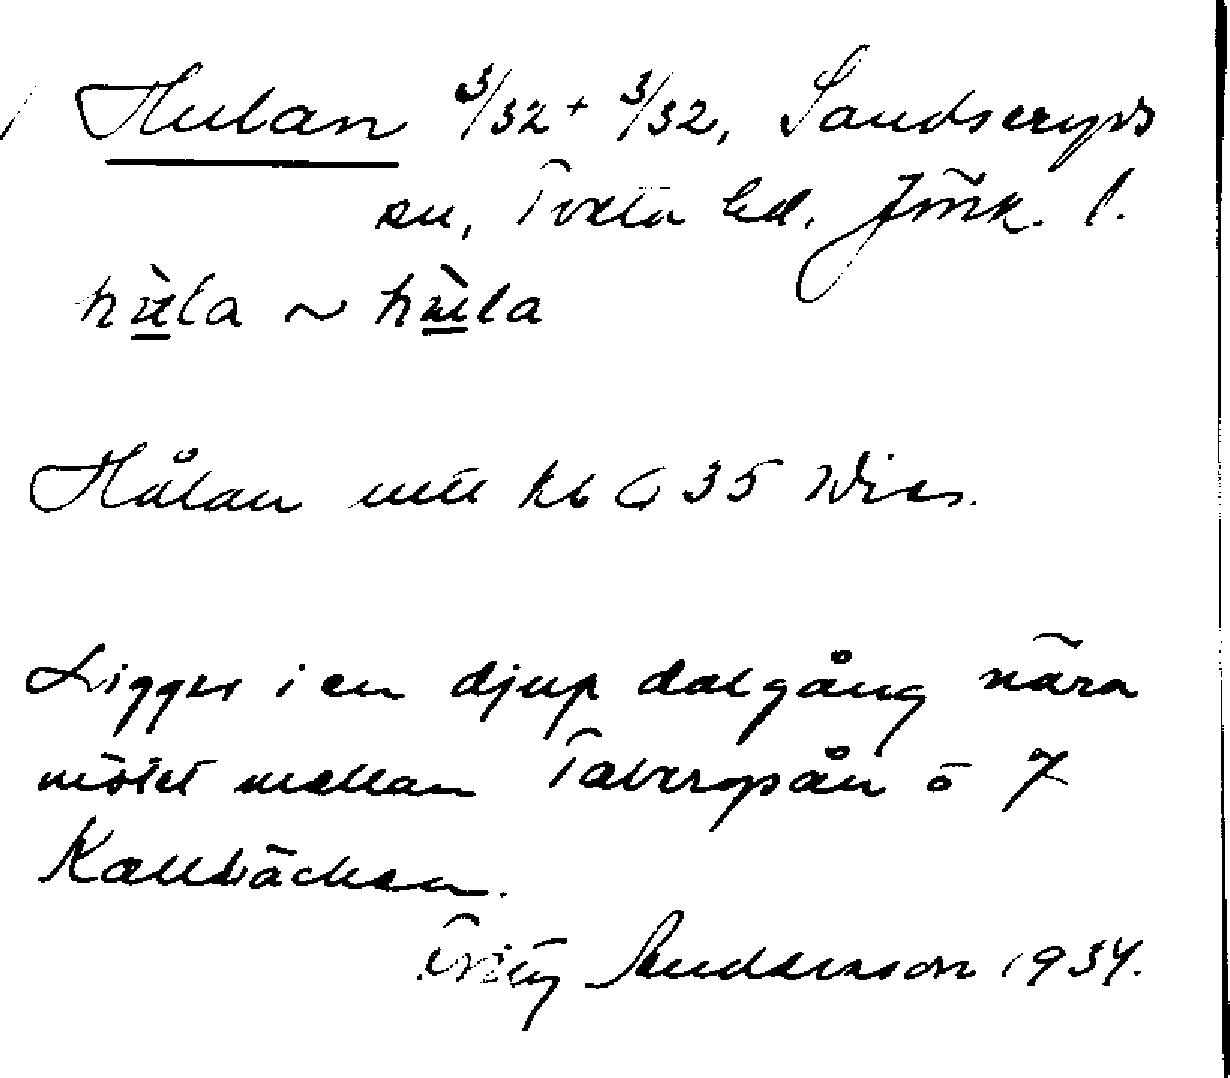 Hulan 3/32 + 3/32, Sandseryds
sn, Tveta hd. Jönk. l.
hu̲la ~ hu̲la
Hålan
Ligger i en djup dalgång nära
mötet mellan Tabergsån o
Kallbäcken.
Fritz Andersson 1934.